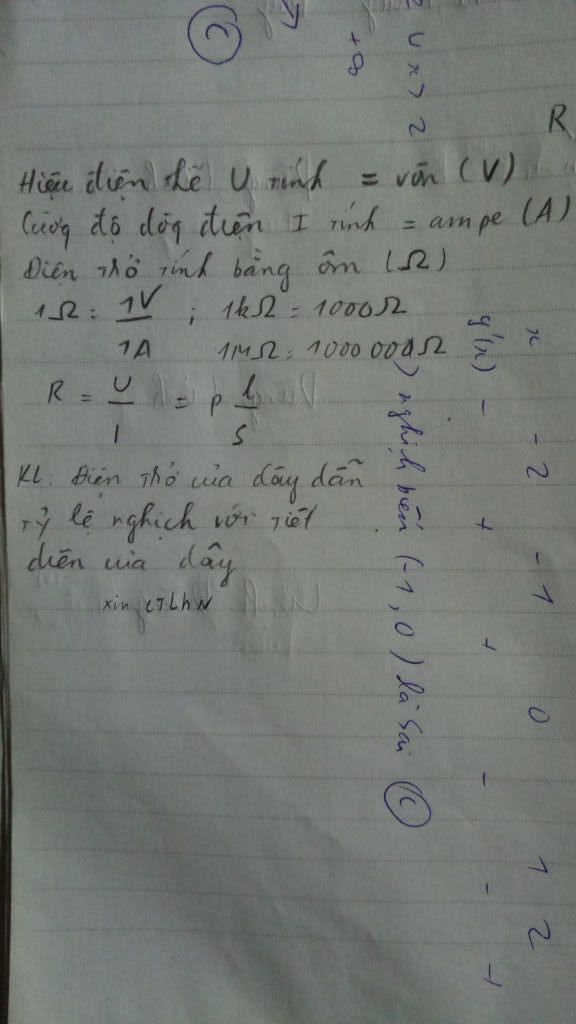 R
Hiệu điện thế U tính = vôn (V)
Cường độ dòg điện I tính = ampe (A)
Điện thở tính bằng ôm (Ω)
1Ω = 1V/1A ; 1kΩ = 1000Ω
1MΩ = 1000 000Ω
R = U/I = ρ l/S
KL: Điện thở của dây dẫn
tỷ lệ nghịch với tiết
diện của dây
xin CTLHN
C
+∞
U x > 2
x -2 -1 0 1 2
g'(x) - + + - - +
) nghịch biến (-1, 0) là sai C